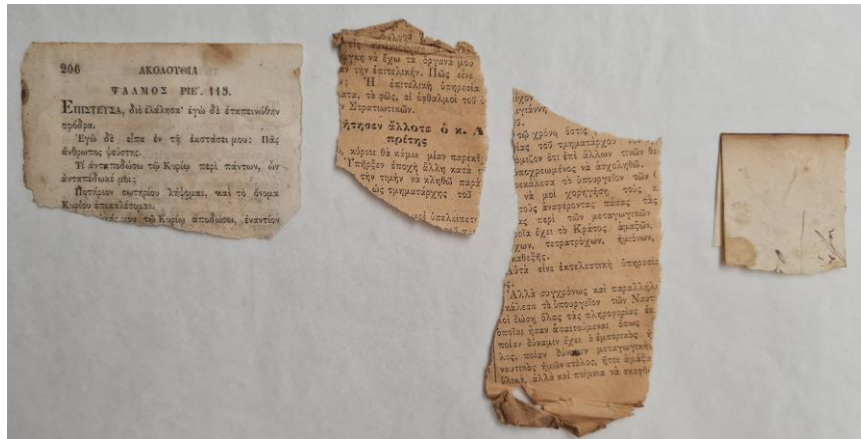 206 ΑΚΟΛΟΥΘΙΑ
ΨΑΛΜΟΣ ΡΙΕ΄. 115.
ΕΠΙΣΤΕΥΣΑ, διὸ ἐλάλησα· ἐγὼ δὲ ἐταπεινώθην
σφόδρα.
Ἐγὼ δὲ εἶπα ἐν τῇ ἐκστάσει μου; Πᾶς
ἄνθρωπος ψεύστης.
Τί ἀνταποδώσω τῷ Κυρίῳ περὶ πάντων, ὧν
ἀνταπέδωκέ μοι;
Ποτήριον σωτηρίου λήψομαι, καὶ τὸ ὄνομα
Κυρίου ἐπικαλέσομαι.
μου τῷ Κυρίῳ ἀποδώσω, ἐναντίον
γκη νὰ ἔχω τὰ ὄργανά μου
ν τὴν ἐπιτελικήν. Πῶς εἶνε
; Ἡ ἐπιτελικὴ ὑπηρεσία
ατα, τὸ φῶς, οἱ ὀφθαλμοὶ τοῦ
ν Στρατιωτικῶν.
ήτησεν ἄλλοτε ὁ κ. Λ
πρίτης
, κύριοι θὰ κάμω μίαν παρεκβ
Ὑπῆρξεν ἐποχὴ ἄλλη κατὰ
τὴν τιμὴν νὰ κληθῶ παρὰ
ὡς τμηματάρχης τοῦ
μοὶ ὑπελείπετο
εγιάννη
τῷ χρόνῳ ὅστις
ίας τοῦ τμηματάρχου
όμιζον ὅτι ἐπὶ ἄλλων τινῶν θε
ποχρεωμένος νὰ ἀσχοληθῶ.
εκάλεσα τὸ ὑπουργεῖον τῶν
νὰ μοὶ χορηγήσῃ τοὺς
ροὺς ἀναφέροντας πάσας τὰς
ας περὶ τῶν μεταγωγικῶν
ποῖα ἔχει τὸ Κράτος ἁμαξῶν,
χων, τετρατρόχων, ἡμιόνων,
καθεξῆς.
Αὐτὰ εἶνε ἐκτελεστικὴ ὑπηρεσί
ς.
Ἀλλὰ συγχρόνως καὶ παραλλήλ
κάλεσα τὸ ὑπουργεῖον τῶν Ναυτ
οὶ δώσῃ ὅλας τὰς πληροφορίας
ὁποῖαι ἦσαν ἀπαιτούμεναι ὅπως
ποίαν δύναμιν ἔχει ὁ ἐμπορικὸς
λος, ποίαν δύναμιν μεταγωγικὴν
ναυτικὸς ἡμῶν στόλος, ἤτοι ἀμάξα
ὑλικά, ἀλλὰ καὶ ποίμνια νὰ σκεφθ